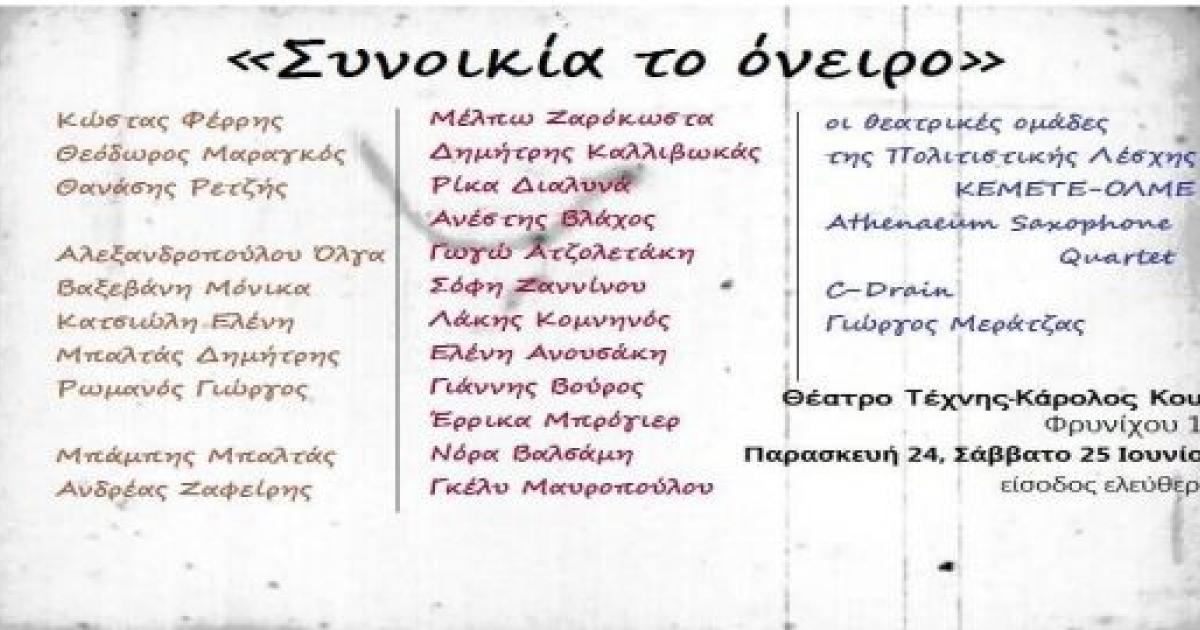 «Συνοικία το όνειρο»
Κώστας Φέρρης
Θεόδωρος Μαραγκός
Θανάσης Ρετζής
Αλεξανδροπούλου Όλγα
Βαξεβάνη Μόνικα
Κατσιώλη Ελένη
Μπαλτάς Δημήτρης
Ρωμανός Γιώργος
Μπάμπης Μπαλτάς
Ανδρέας Ζαφείρης
Μέλπω Ζαρόκωστα
Δημήτρης Καλλιβωκάς
Ρίκα Διαλυνά
Ανέστης Βλάχος
Γωγώ Ατζολετάκη
Σόφη Ζαννίνου
Λάκης Κομνηνός
Ελένη Ανουσάκη
Γιάννης Βούρος
Έρρικα Μπρόγιερ
Νόρα Βαλσάμη
Γκέλυ Μαυροπούλου
οι θεατρικές ομάδες
της Πολιτιστικής Λέσχης
ΚΕΜΕΤΕ-ΟΛΜΕ
Athenaeum Saxophone
Quartet
C-Drain
Γιώργος Μεράτζας
Θέατρο Τέχνης-Κάρολος
Φρυνίχου
Παρασκευή 24, Σάββατο 25
είσοδος